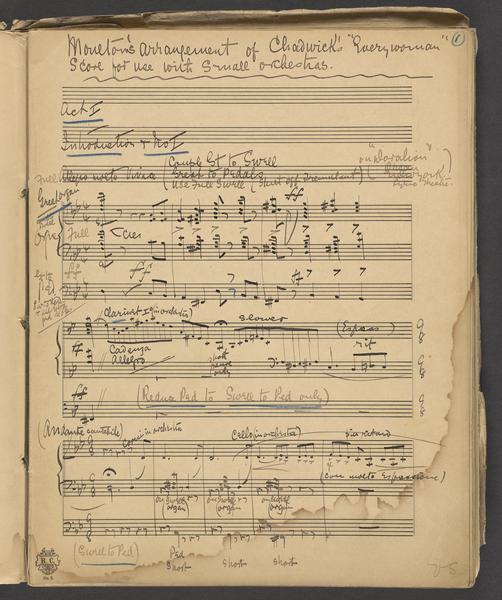 Moulton's arrangement of Chadwick's "Everywoman" 1
Score for use with small orchestras.
Act I
Introduction & No I
Allegro molto Vivace (Couple Gt to Swell
Great to Pedals
Use Full Swell) (Shut off Tremulant)
Full
Great organ
ff
Full
ff ff
Clarinet in orchestra slower (Espress)
Cadenza short pause only rit
Allegro
ff
(Reduce Ped to Swell to Ped only)
(Andante cantabile) Corni in orchestra Cello (in orchestra)
(con molto Espressione)
on Swell organ
(Swell to Ped) Ped short short short